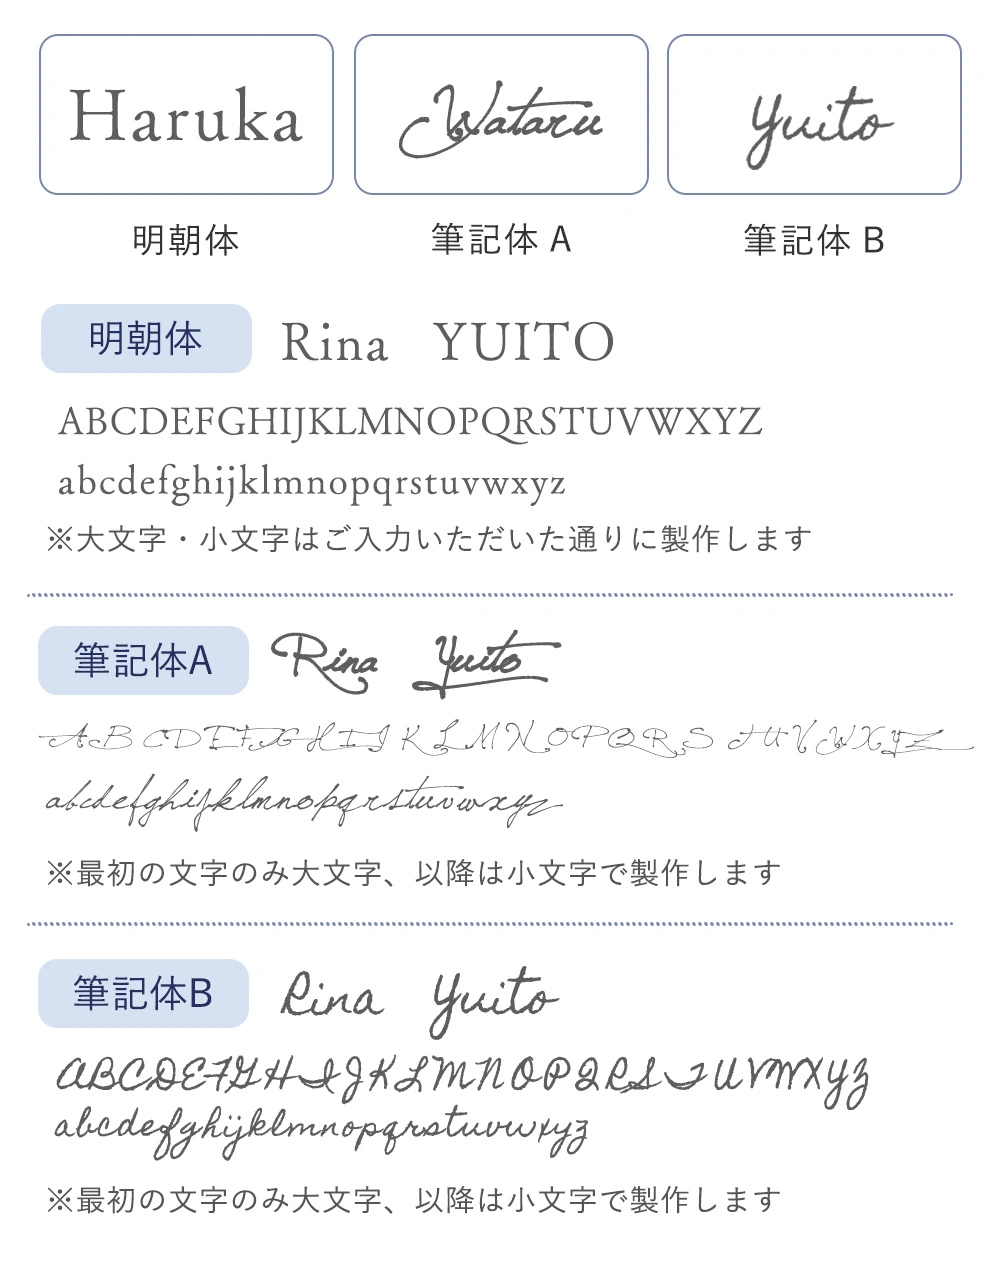 Haruka Wataru Yuito
明朝体 筆記体 A 筆記体 B
明朝体 Rina YUITO
ABCDEFGHIJKLMNOPQRSTUVWXYZ
abcdefghijklmnopqrstuvwxyz
※大文字・小文字はご入力いただいた通りに製作します
筆記体A Rina Yuito
ABCDEFGHIJKLMNOPQRSTUVWXYZ
abcdefghijklmnopqrstuvwxyz
※最初の文字のみ大文字、以降は小文字で製作します
筆記体B Rina Yuito
ABCDEFGHIJKLMNOPQRSTUVWXYZ
abcdefghijklmnopqrstuvwxyz
※最初の文字のみ大文字、以降は小文字で製作します